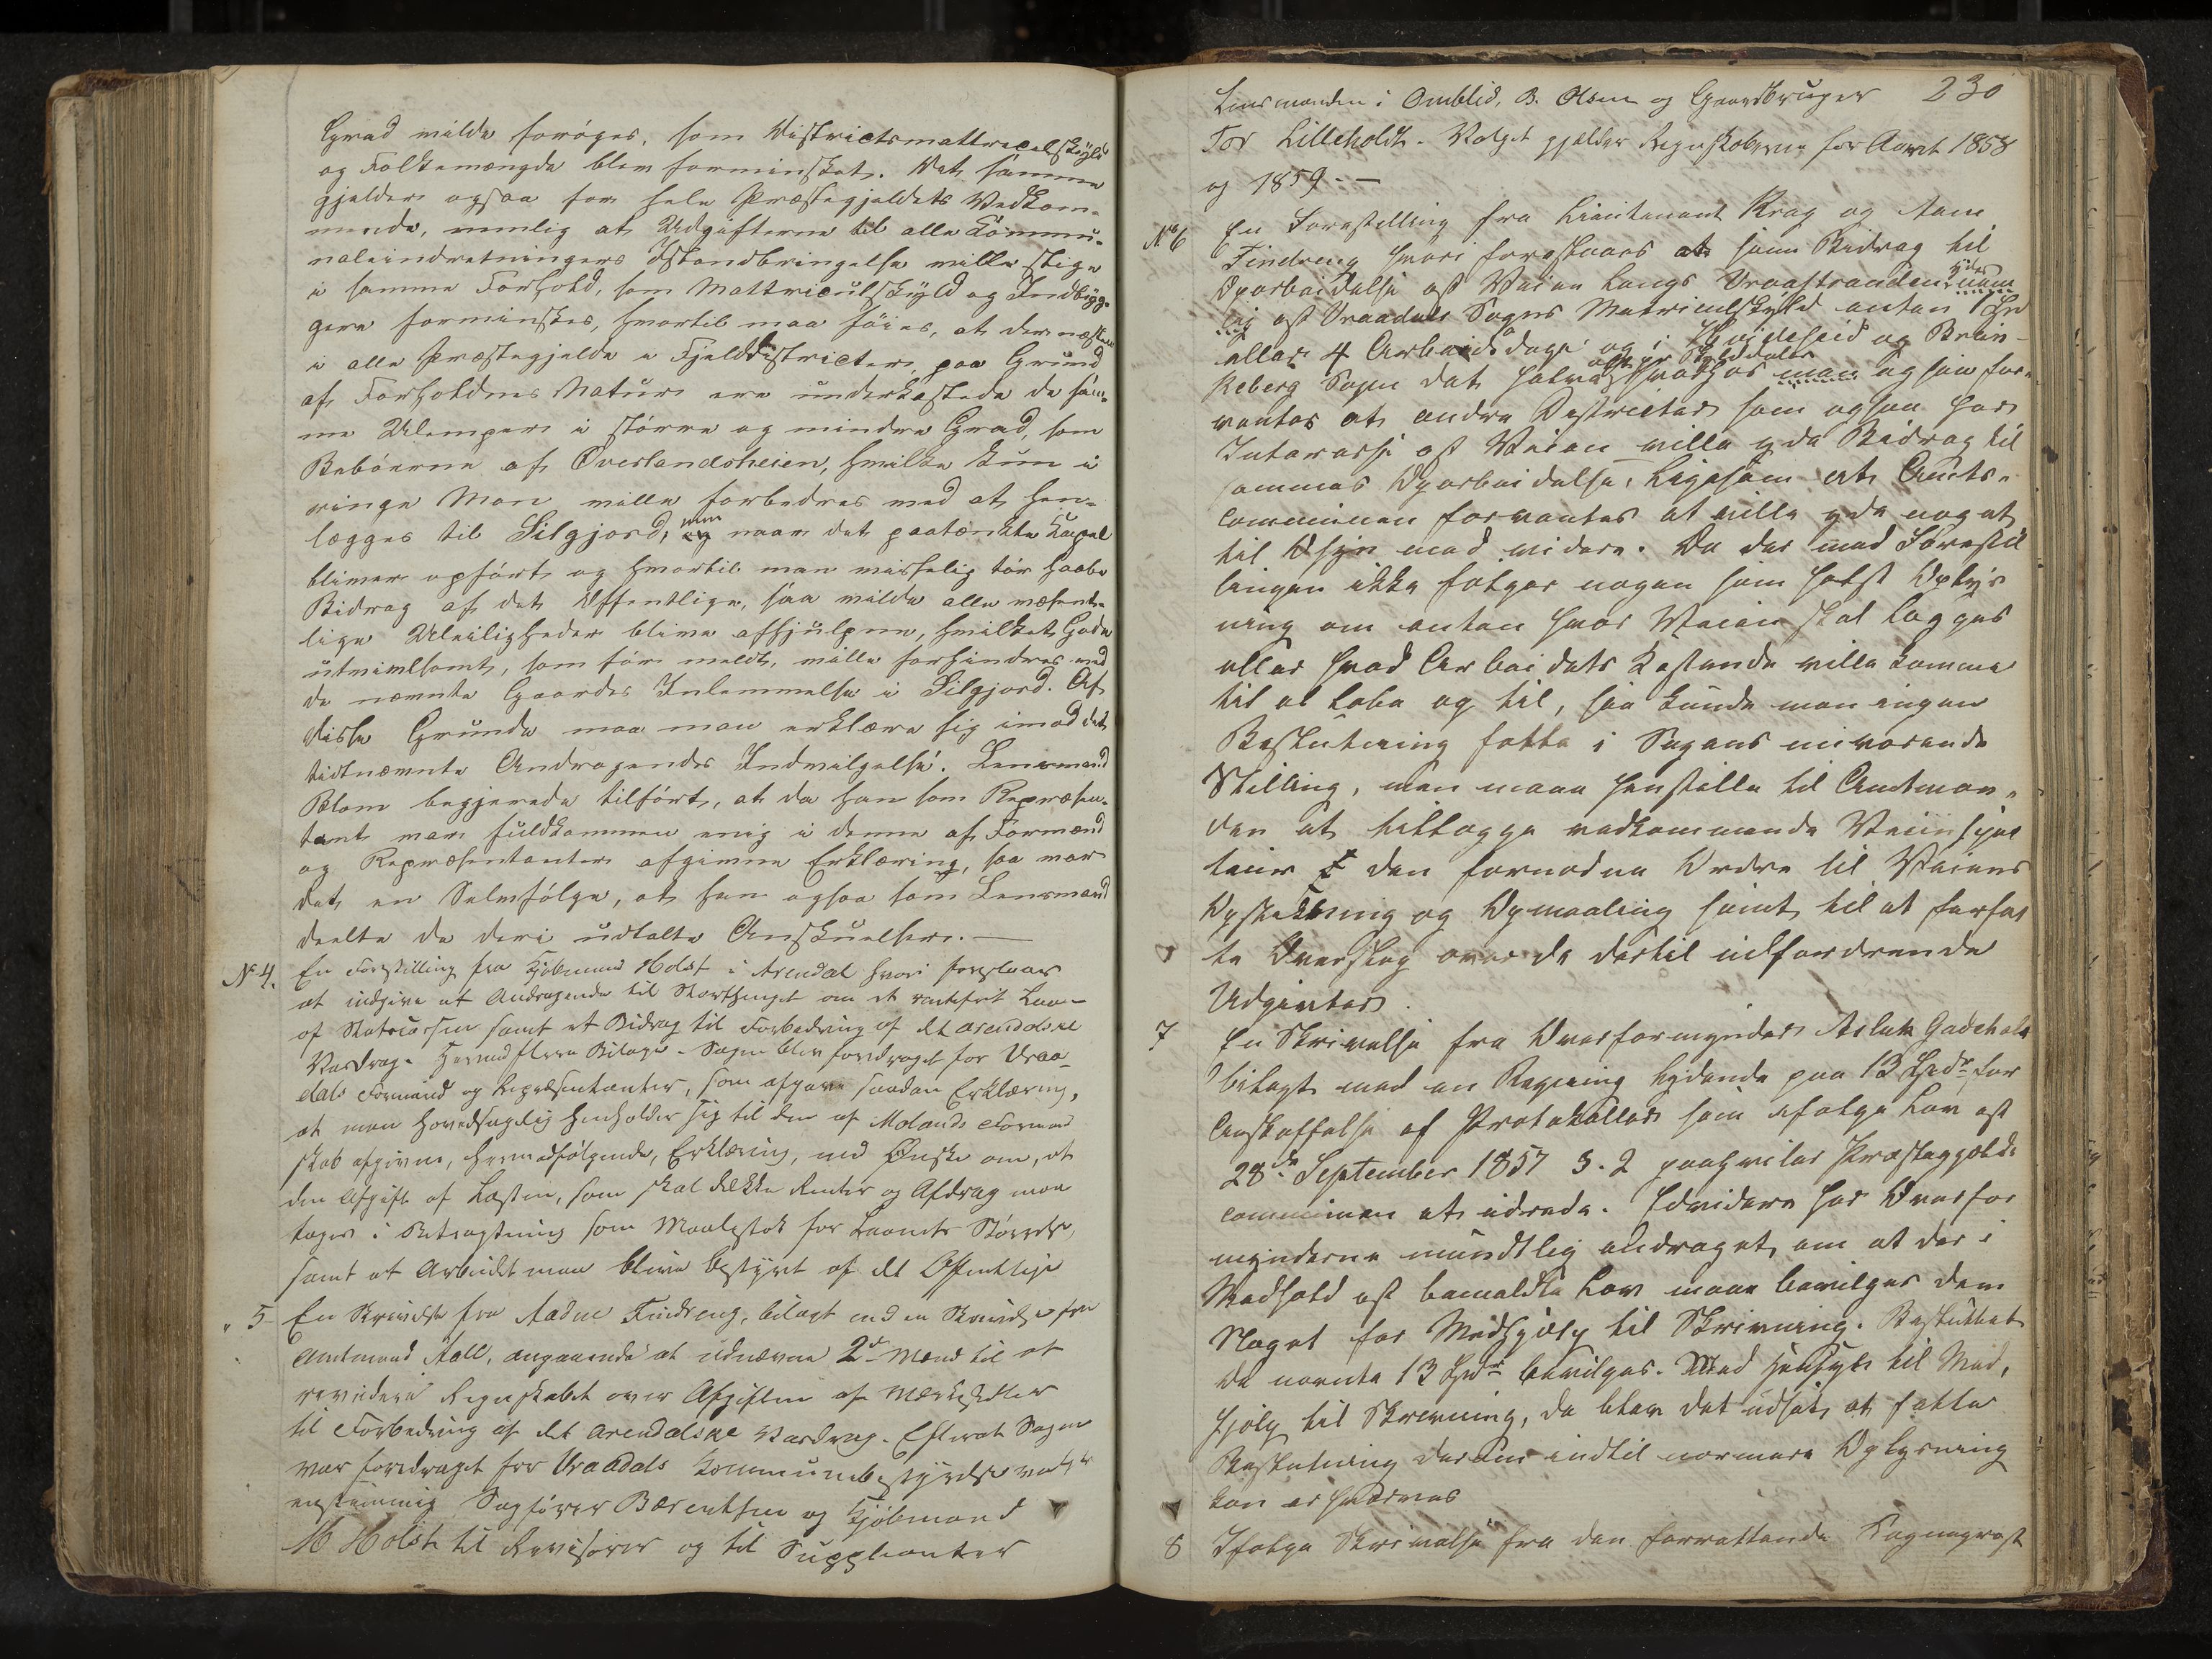 Grad vilde forøges, som Districtsmattriculskyld
og Folkemængde blev forminsket. Det samme
gjelder ogsaa for hele Præstegjeldets Vedkom-
mende, nemlig at Udgifterne til alle Commu-
naleindretningers Istandbringelse ville stige
i samme Forhold, som Mattriculskyld og Indbyg-
gere forminskes, hvortil maa føies, at der næsten
i alle Præstegjelde i Fjelddistricter paa Grund
af Forholdenes Natur ere underkastede de sam-
me Ulemper i større og mindre Grad, som
Beboerne af Overlandsheien, hvilke kun i
ringe Mon ville forbedres med at hen-
lægges til Silgjord; men naar det paatænkte Kapel
bliver opført og hvortil man visselig tør haabe
Bidrag af det Offentlige, saa vilde alle væsent-
lige Uleiligheder blive afhjulpne, hvilket Gode
utvivlsomt, som før meldt, ville forhindres ved
de nævnte Gaardes Indlemmelse i Silgjord. Af
disse Grunde maa man erklære sig imod det
tidtnævnte Andragendes Indvilgelse. Lensmand
Blom begjerede tilført, at da han som Repræsen-
tant var fuldkommen enig i denne af Formænd
og Repræsentanter afgivne Erklæring, saa var
det en Selvfølge, at han ogsaa som Lensmand
deelte de deri udtalte Anskuelser. —
No 4. En Forestilling fra Kjøbmand Holst i Arendal hvori foreslaaes
at indgive et Andragende til Storthinget om et rentefrit Laan
af Statscassen samt et Bidrag til Forbedring af det arendalske
Vasdrag. Hermed flere Bilage. Sagen blev foredraget for Vraa-
dals Formænd og Repræsentanter, som afgave saadan Erklæring,
at man hovedsagelig henholder sig til den af Molands Formand
skab afgivne, hermedfølgende, Erklæring, med Ønske om, at
den Afgift af Lasten, som skal dække Renter og Afdrag maa
tages i Betragtning som Maalestok for Laanets Størrelse,
samt at Arbeidet maa blive bestyret af det Offentlige
" 5 En Skrivelse fra Aadne Findreng, bilagt med en Skrivelse fra
Amtmand Aall, angaaende at udnævne 2de Mænd til at
revidere Regnskabet over Afgiften af Mærkepenge
til Forbedring af det arendalske Vasdrag. Efterat Sagen
var foredraget for Vraadals Kommunebestyrelse valgtes
enstemmig Sagfører Bærentsen og Kjøbmand
M Holst til Revisorer og til Suppleanter
230
Lensmanden i Omblid, B. Olsen og Gaardbruger
Tor Lilleholdt. Valget gjælder Regnskaberne for Aaret 1858
og 1859. —
No 6 En Forestilling fra Lieutenant Krag og Aani
Findreng hvori foreslaaes at som Bidrag til
Oparbeidelse af Veien langs Vraastranden ydes nem
lig af Vraadals Sogns Matriculskyld enten 1 Spd
eller 4 Arbeidsdage og i Hvideseid og Brun-
keberg Sogn det halve alt pr Skylddaler man ogsaa for-
ventes at andre Districter som ogsaa har
Interesse af Veien ville yde Bidrag til
sammes Oparbeidelse, ligesom at Amts-
communen forventes at ville yde noget
til Opsyn med videre. Da der med Forestil
lingen ikke følger nogen som helst Oplys
ning om enten hvor Veien skal lægges
eller hvad Arbeidets Kostende ville komme
til at løbe op til, saa kunde man ingen
Beslutning fatte i Sagens nuværende
Stilling, men maae henstille til Amtman-
den at tillægge vedkommende Veiinspec
teur den fornødne Ordre til Veiens
Opstikning og Opmaaling samt til at forfat
te Overslag over de dertil udfordrende
Udgivter.
7 En Skrivelse fra Overformynder Aslak Gadehals
bilagt med en Regning lydende paa 13 Spdr for
Anskaffelse af Protokoller som ifølge Lov af
28de September 1857 § 2 paahviler Præstegjelds
communen at udrede. Endvidere har Overfor
mynderne mundtlig andraget om at der i
Medhold af bemældte Lov maae bevilges dem
Noget for Medhjælp til Skrivning. Besluttet
De nævnte 13 Spdr bevilges. Med Hensyn til Med,
hjælp til Skrivning, da blev det udsat, at fatte
Beslutning derom indtil nærmere Oplysning
kan erhverves
8 Ifølge Skrivelse fra den forrettende Sogneprest